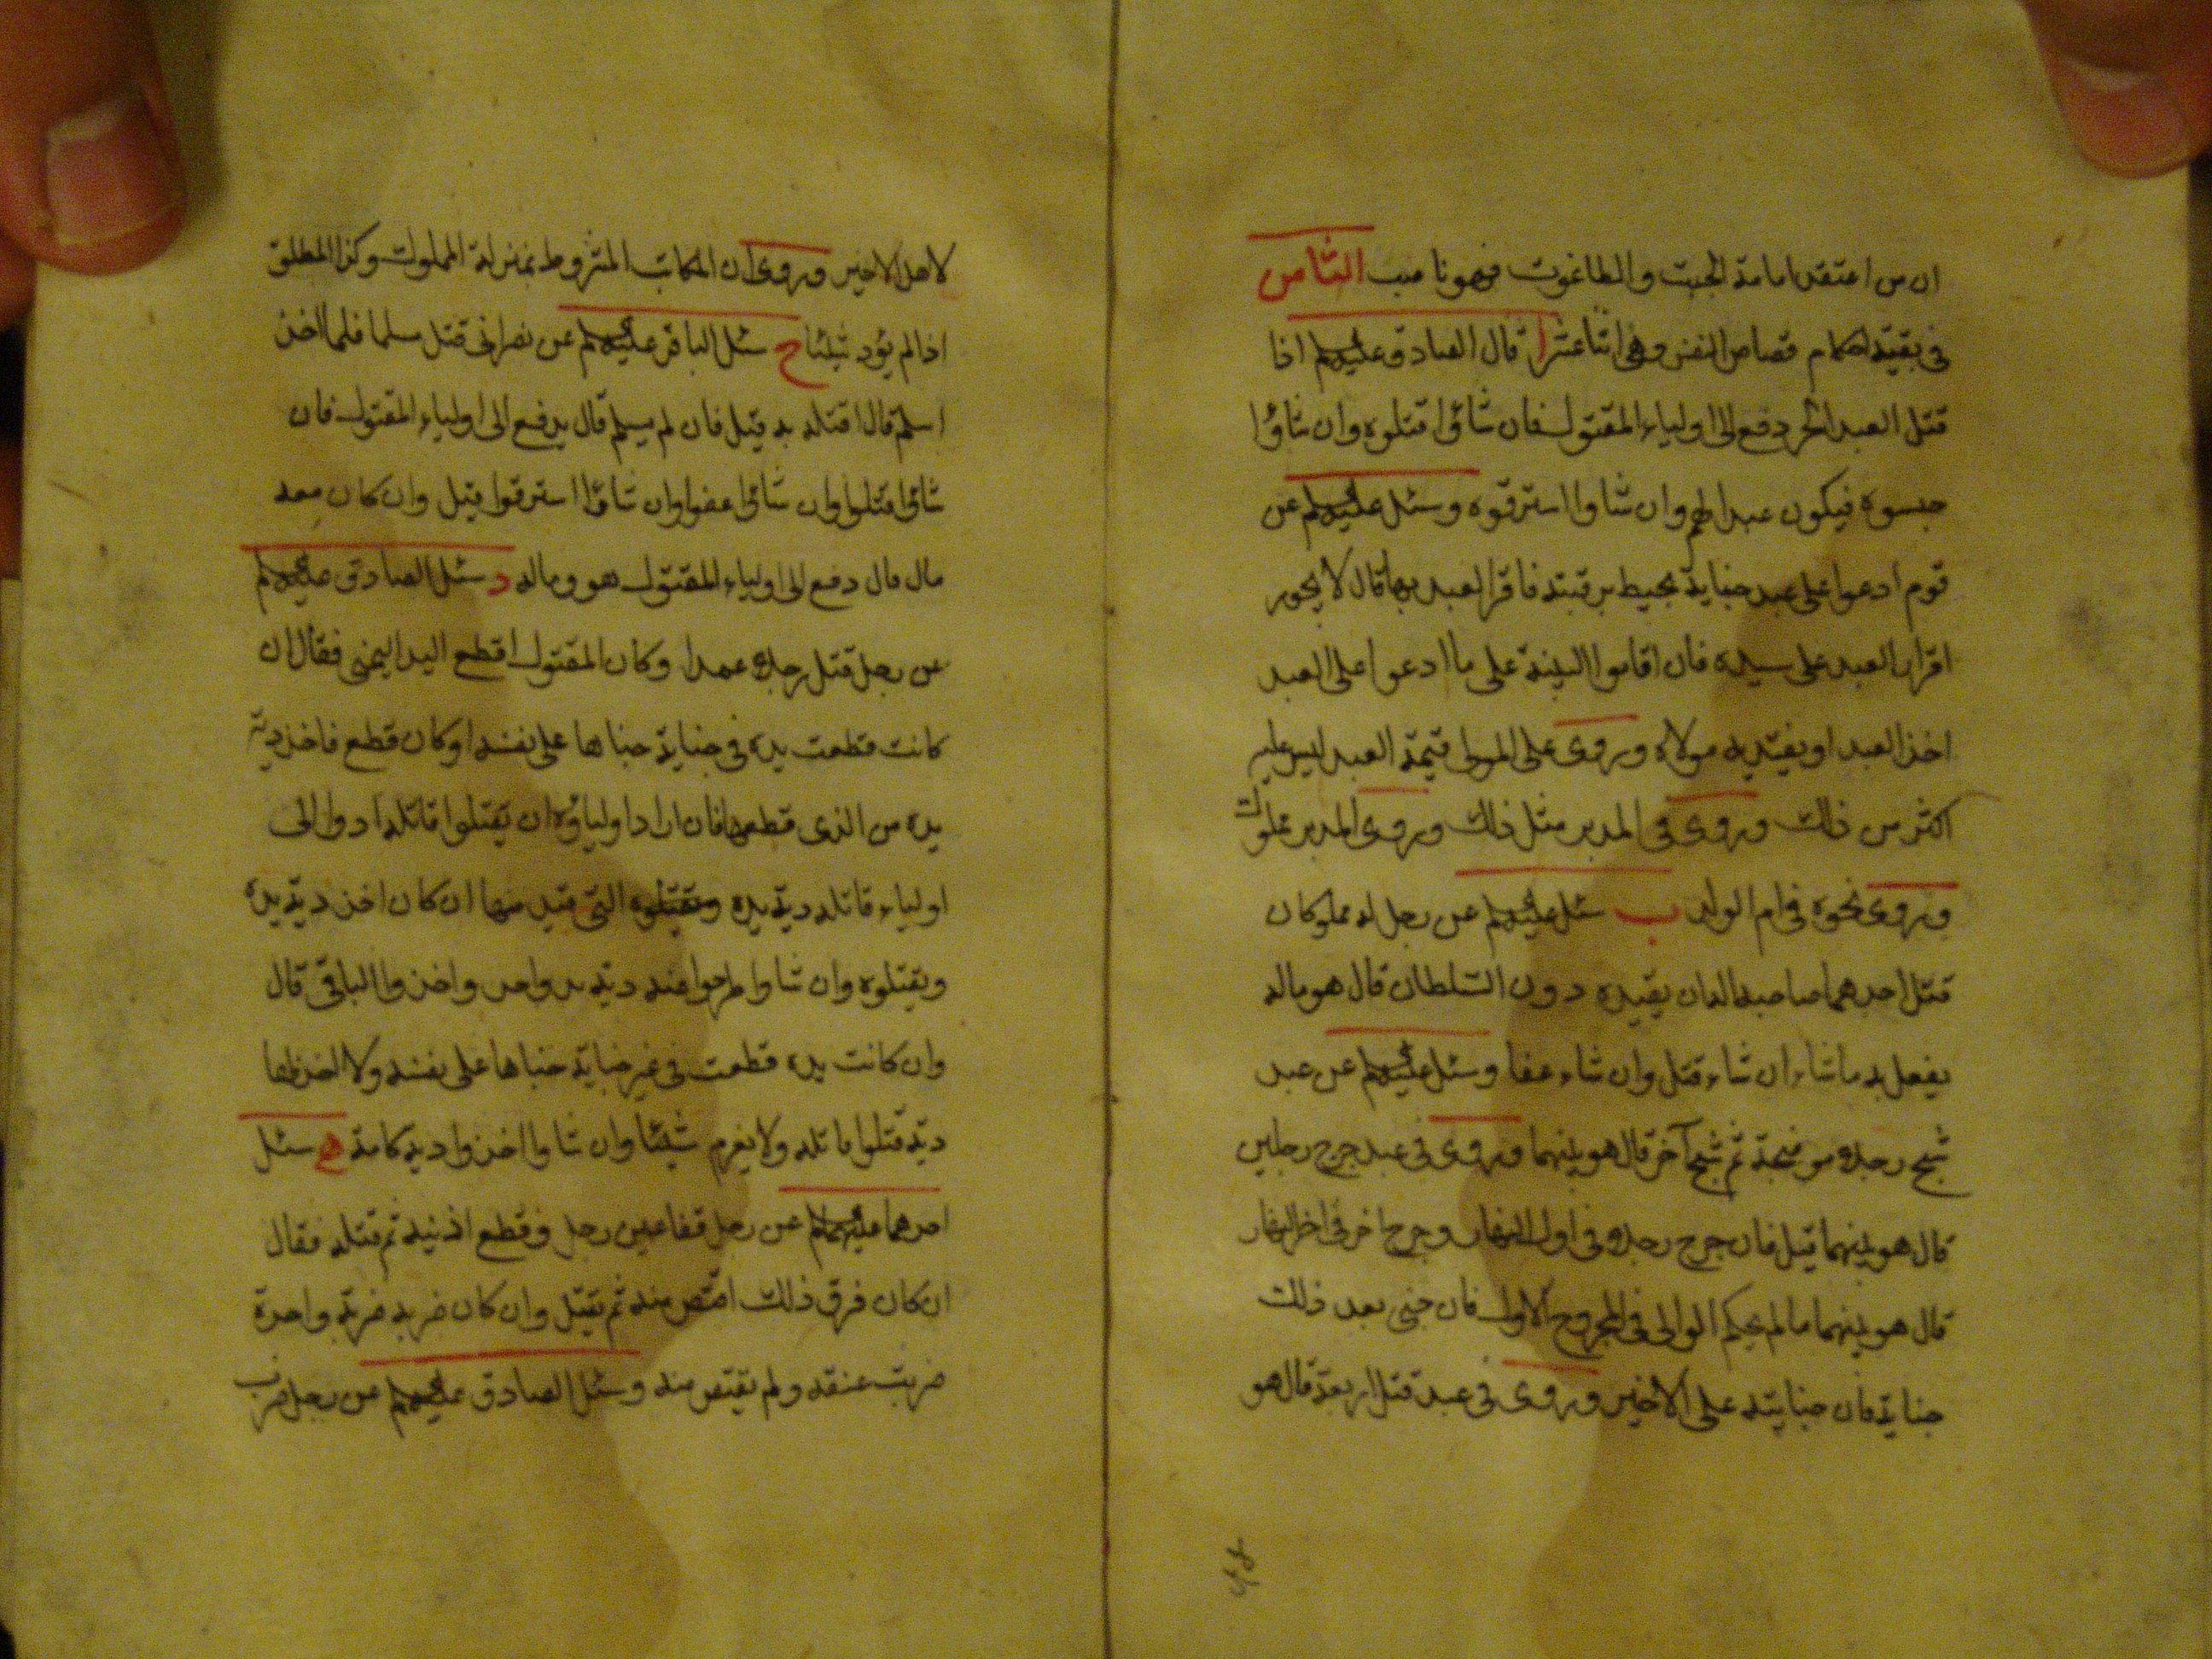 ان من اعتقد امامة الجبت والطاغوت فهو ناصب الثامن
فى بقية احكام قصاص النفس وهى اثنا عشر ا قال الصادق عليه السلم اذا
قتل العبد الحر دفع الى اولياء المقتول فان شاؤا قتلوه وان شاؤا
حبسوه فيكون عبدا لهم وان شاوا استرقوه وسئل عليه السلم عن
قوم ادعوا على عبد جناية تحيط برقبته فاقر العبد بها قال لا يجوز
اقرار العبد على سيده فان اقاموا البينة على ما ادعوا على العبد
اخذ العبد او يفتديه مولاه وروى على المولى قيمة العبد ليس عليه
اكثر من ذلك وروى فى المدبر مثل ذلك وروى المدبر مملوك
وروى نحوه فى ام الولد ب سئل عليه السلم عن رجل له مملوكان
قتل احدهما صاحبه اله ان يقيده دون السلطان قال هو ماله
يفعل به ما شاء ان شاء قتل وان شاء عفا وسئل عليه السلم عن عبد
شج رجلا موضحة ثم شج آخر قال هو بينهما وروى فى عبد جرح رجلين
قال هو بينهما قيل فان جرح رجلا فى اول النهار وجرح اخر فى اخر النهار
قال هو بينهما ما لم يحكم الوالى فى المجروح الاول فان جنى بعد ذلك
جناية فان جنايته على الاخير وروى فى عبد قتل اربعة قال هو
لاهل الاخير وروى ان المكاتب المشروط بمنزلة المملوك وكذا المطلق
اذا لم يؤد شيئا ج سئل الباقر عليه السلم عن نصرانى قتل مسلما فلما اخذ
اسلم قال اقتله به قيل فان لم يسلم قال يدفع الى اولياء المقتول فان
شاؤا قتلوا وان شاؤا عفوا وان شاؤا استرقوا قيل وان كان معه
مال قال دفع الى اولياء المقتول هو وماله د سئل الصادق عليه السلم
عن رجل قتل رجلا عمدا وكان المقتول اقطع اليد اليمنى فقال ان
كانت قطعت يده فى جناية جناها على نفسه او كان قطع فاخذ دية
يده من الذى قطعها فان اراد اولياؤه ان يقتلوا قاتله ادوا الى
اولياء قاتله دية يده ويقتلوه التى قيد منها ان كان اخذ دية يده
ويقتلوه وان شاوا طرحوا عنه دية يد واحد واخذوا الباقى قال
وان كانت يده قطعت فى غير جناية جناها على نفسه ولا اخذ لها
دية قتلوا قاتله ولا يغرم شيئا وان شاوا اخذوا دية كاملة ه سئل
احدهما عليهما السلم عن رجل فقا عين رجل وقطع اذنيه ثم قتله فقال
ان كان فرق ذلك اقتص منه ثم يقتل وان كان ضربه ضربة واحدة
ضربت عنقه ولم يقتص منه وسئل الصادق عليه السلم عن رجل ضرب